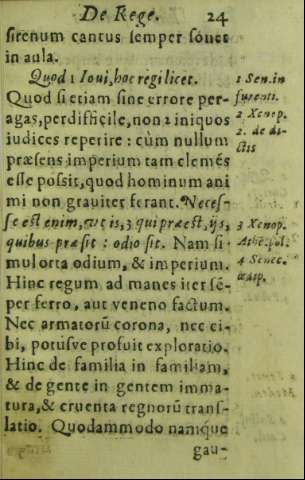 De Rege. 24
sirenum cantus semper sónet
in aula.
Quod 1 Ioui, hoc regi licet.
Quod si etiam sine errore per-
agas, perdifficile, non 2 iniquos
iudices reperire : cùm nullum
præsens imperium tam clemẽs
esse possit, quod hominum ani
mi non grauiter ferant. Neces-
se est enim, vt is, 3 qui præest, ijs,
quibus præsit : odio sit. Nam si-
mul orta odium, & imperium.
Hinc regum ad manes iter sẽ-
per ferro, aut veneno factum.
Nec armatorũ corona, nec ci-
bi, potúsve profuit exploratio.
Hinc de familia in familiam,
& de gente in gentem imma-
tura, & cruenta regnorũ trans-
latio. Quodammodo nanque
gau-
1 Sen. in
furenti.
2 Xenop.
2. de di-
ctis
3 Xenop.
Athe. pol.
4 Senec.